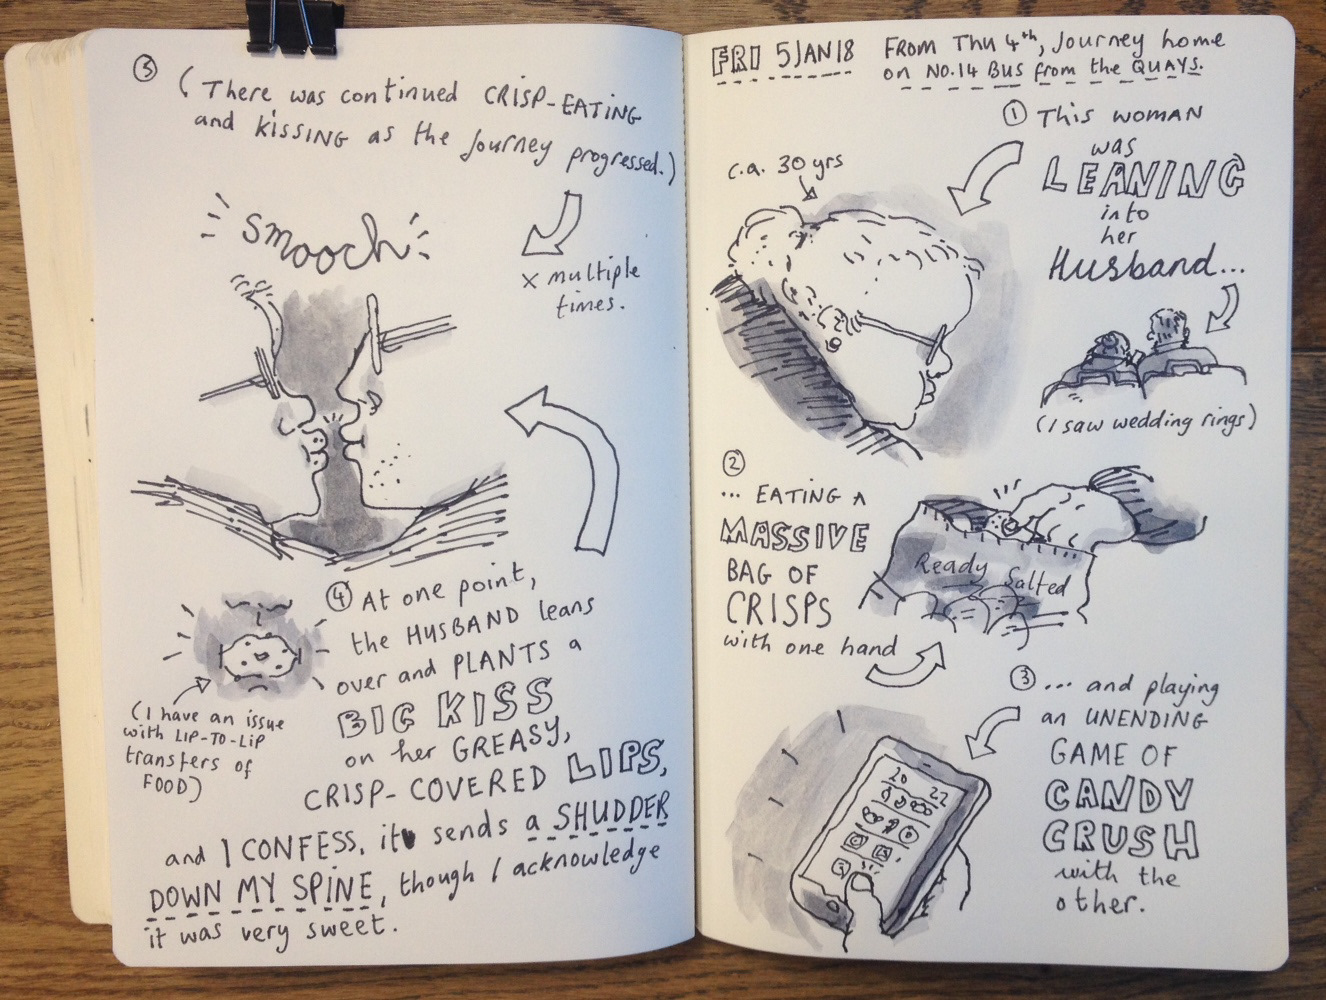 FRI 5 JAN 18
FROM Thu 4th, Journey home
on No.14 BUS from the QUAYS.
① This WOMAN
was
LEANING
into
her
Husband...
c.a. 30 yrs
(I saw wedding rings)
②
... EATING A
MASSIVE
BAG OF
CRISPS
with one hand
Ready Salted
③ ... and playing
an UNENDING
GAME OF
CANDY
CRUSH
with the
other.
20 22
④ At one point,
the HUSBAND leans
over and PLANTS a
BIG KISS
on her GREASY,
CRISP-COVERED LIPS,
and I CONFESS, it sends a SHUDDER
DOWN MY SPINE, though I acknowledge
it was very sweet.
(I have an issue
with LIP-TO-LIP
transfers of
FOOD)
⑤
(There was continued CRISP-EATING
and KISSING as the Journey progressed.)
smooch
x multiple
times.